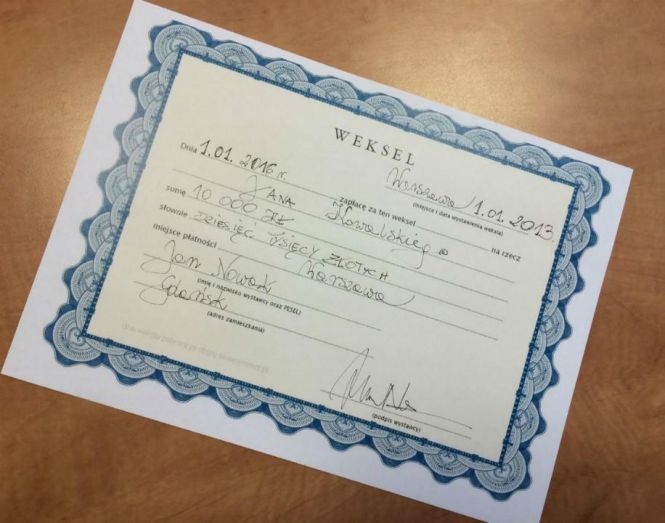 WEKSEL
Warszawa, 1.01.2013
(miejsce i data wystawienia weksla)
Dnia 1.01.2016 r. zapłacę za ten weksel
na rzecz JANA Kowalskiego
sumę 10 000 ZŁ
słownie DZIESIĘĆ TYSIĘCY ZŁOTYCH
miejsce płatności Warszawa
Jan Nowak
(imię i nazwisko wystawcy oraz PESEL)
Gdańsk
(adres zamieszkania)
(podpis wystawcy)